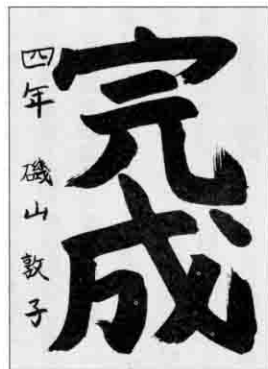 完成
四年 磯山敦子